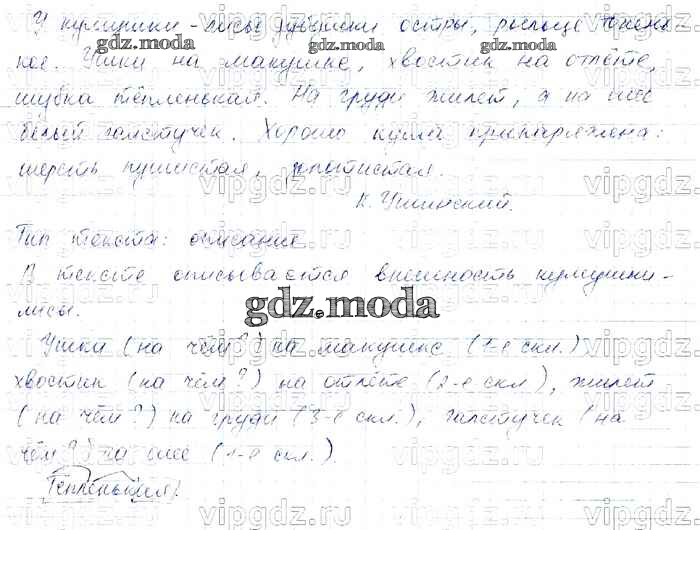 У кумушки-лисы зубушки остры, рыльце тонень
кое. Ушки на макушке, хвостик на отлёте,
шубка тёпленькая. На груди жилет, а на шее
белый галстучек. Хорошо кума принаряжена:
шерсть пушистая, золотистая.
К. Ушинский.
Тип текста: описание.
В тексте описывается внешность кумушки-
лисы.
Ушки (на чём?) на макушке (1-е скл.)
хвостик (на чём?) на отлёте (2-е скл), жилет
(на чём?) на груди (3-е скл.), галстучек (на
чём?) на шее (1-е скл.).
Тёпленькая
gdz.moda
vipgdz.ru